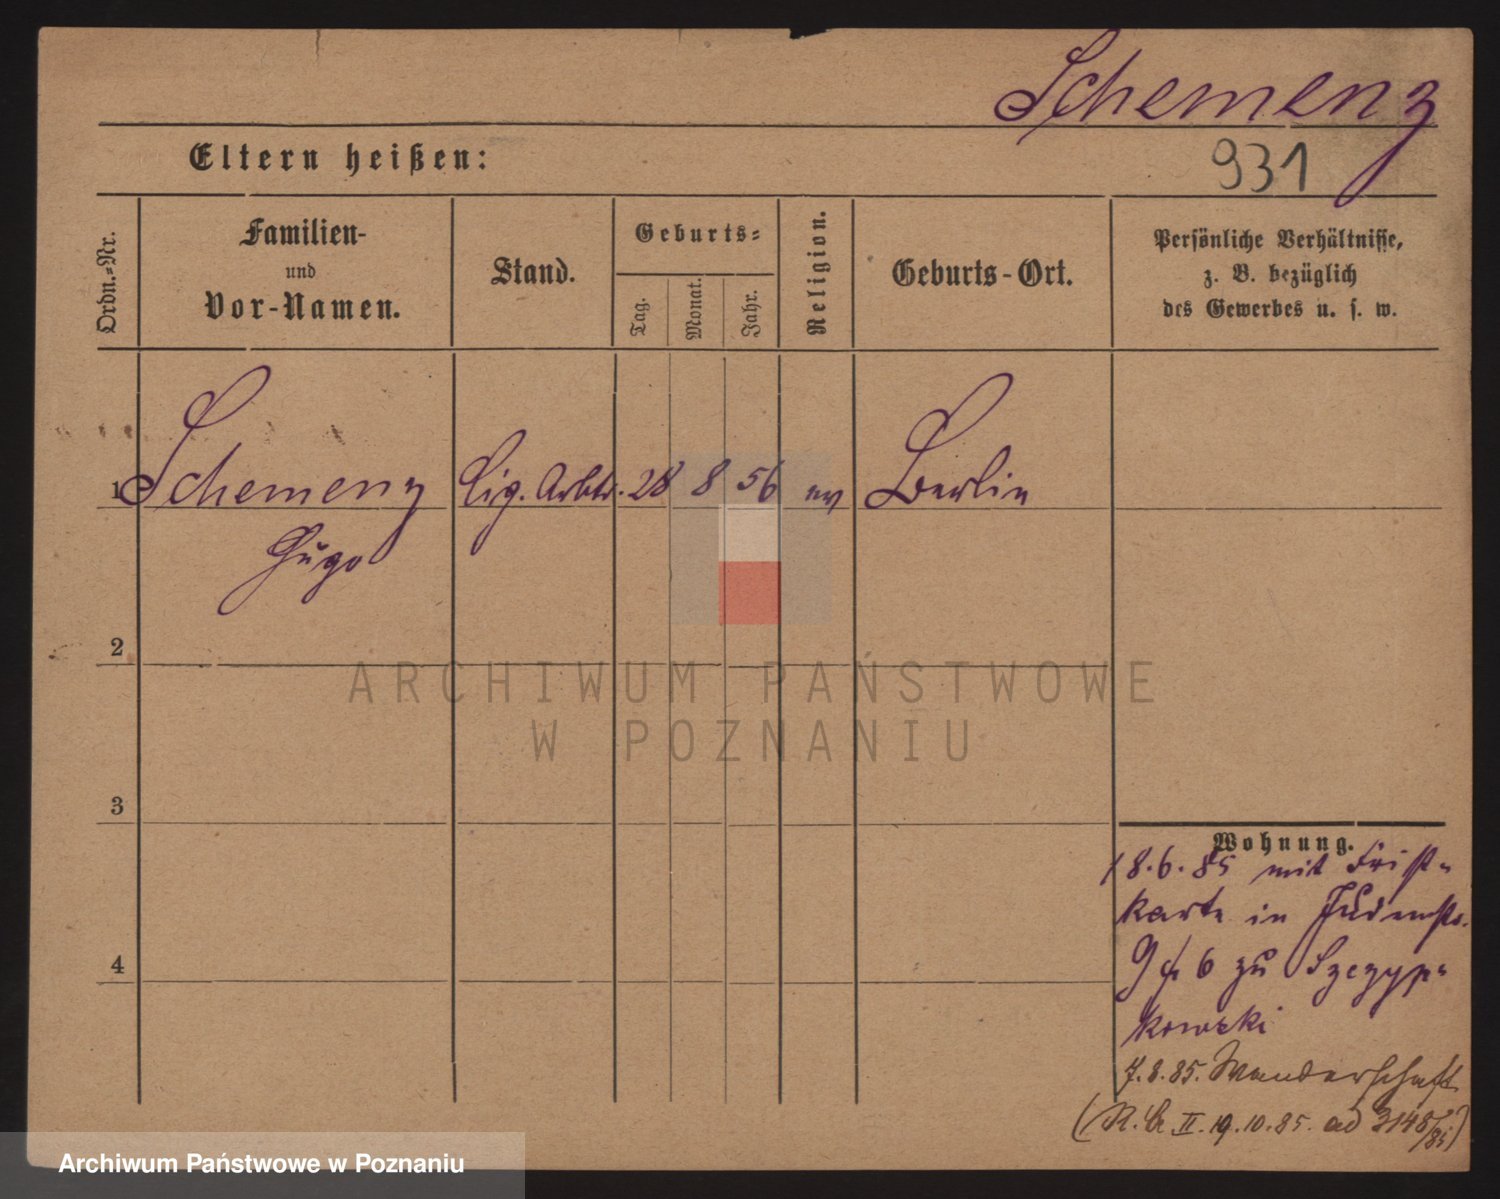 Schemenz
Eltern heißen:
931
Ordn.=Nr.
Familien-
und
Vor-Namen.
Stand.
Geburts=
Tag.
Monat.
Jahr.
Religion.
Geburts-Ort.
Persönliche Verhältnisse,
z. B. bezüglich
des Gewerbes u. s. w.
1 Schemenz Cig. Arbtr. 28 8 56 ev Berlin
Hugo
2
ARCHIWUM PAŃSTWOWE
W POZNANIU
3
Wohnung.
18.6.85 mit Frist=
karte in Judenstr.
9 6 zu Szczyp=
kowski
7.8.85. Wanderschaft
4
(R. II. 19.10.85. ad 3148/85)
Archiwum Państwowe w Poznaniu